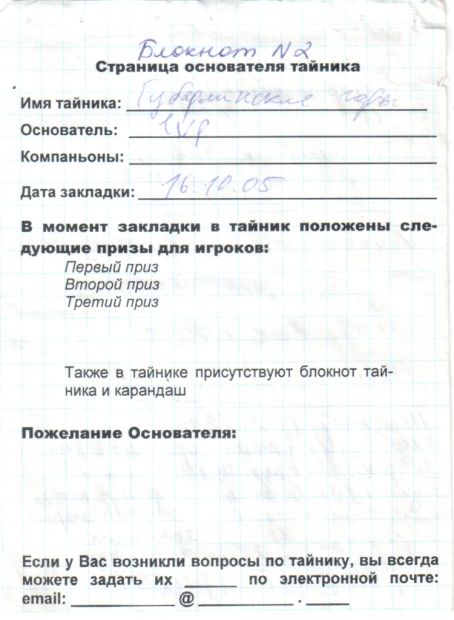 Блокнот N2
Страница основателя тайника
Имя тайника: Губерлинские горы
Основатель:
Компаньоны:
Дата закладки: 16.10.05
В момент закладки в тайник положены сле-
дующие призы для игроков:
Первый приз
Второй приз
Третий приз
Также в тайнике присутствуют блокнот тай-
ника и карандаш
Пожелание Основателя:
Если у Вас возникли вопросы по тайнику, вы всегда
можете задать их ______ по электронной почте:
email: __________ @ __________ . _____